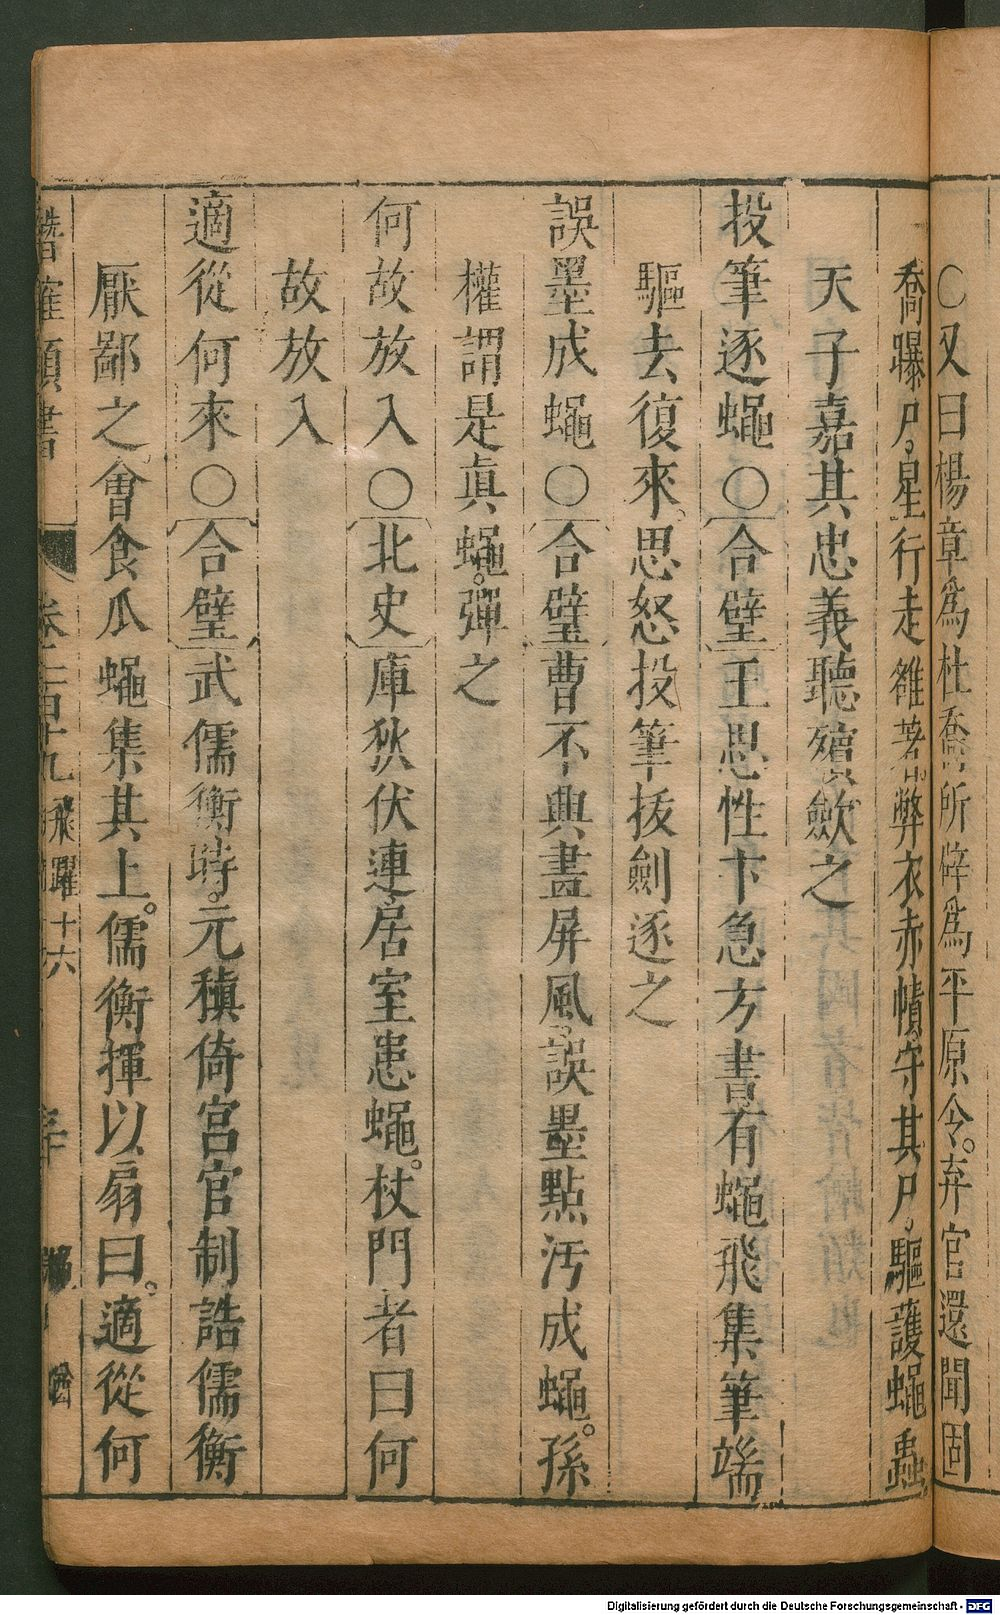 〇又曰楊章爲杜喬所辟爲平原令。弃官還聞固
喬曝尸。星行走雒著弊衣赤幘守其尸。驅護蠅蟲。
天子嘉其忠義聽殯歛之
投筆逐蠅〇合璧王思性卞急方書有蠅飛集筆端
驅去復來。思怒投筆拔劍逐之
誤墨成蠅〇合璧曹不興畫屏風。誤墨點汚成蠅。孫
權謂是眞蠅。彈之
何故放入〇北史庫狄伏連居室患蠅。杖門者曰何
故放入
適從何來〇合璧武儒衡時。元稹倚宮官制誥儒衡
厭鄙之會食瓜蠅集其上。儒衡揮以扇曰。適從何
潛確類書 卷一百十九 飛躍十六
Digitalisierung gefördert durch die Deutsche Forschungsgemeinschaft - DFG